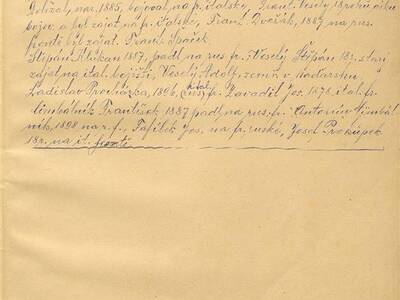 Doležal, nar. 1885, bojoval na fr. italské, Frant. Veselý 18 roků věku
bojov. a byl zajat na fr. italské, Frant. Dvořák, 1887 na rus.
frontě byl zajat. Frant. Špaček
Štěpán Klukan 1887, padl na rus. fr. Veselý Štěpán 18 r. starý
zajat na ital. bojišti, Veselý Adolf, zemř. v Maďarsku
Ladislav Procházka, 1896, (rus) ital fr. Zavadil Jos. 1878, ital. fr.
Cimbálník František 1887 padl na rus. fr. Antonín Cimbál
ník, 1898 na r. f., Tafilek Jos. na fr. ruské, Josef Prokůpek
18 r. na it. frontě